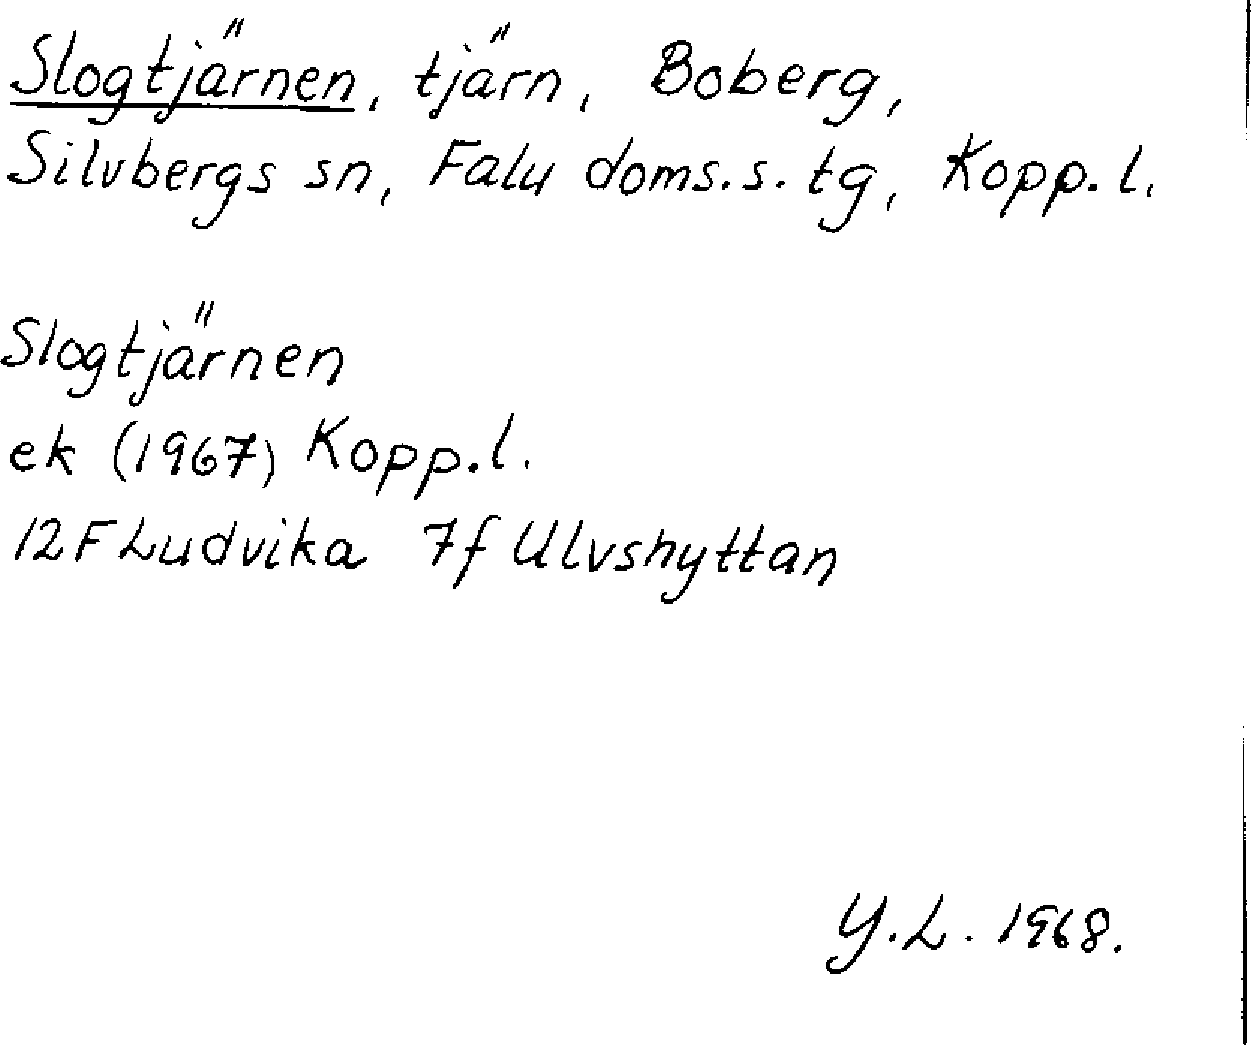 Slogtjärnen, tjärn, Boberg,
Silvbergs sn, Falu doms.s. tg, Kopp. l.
Slogtjärnen
ek (1967) Kopp.l.
12F Ludvika 7f Ulvshyttan
Y.L. 1968.